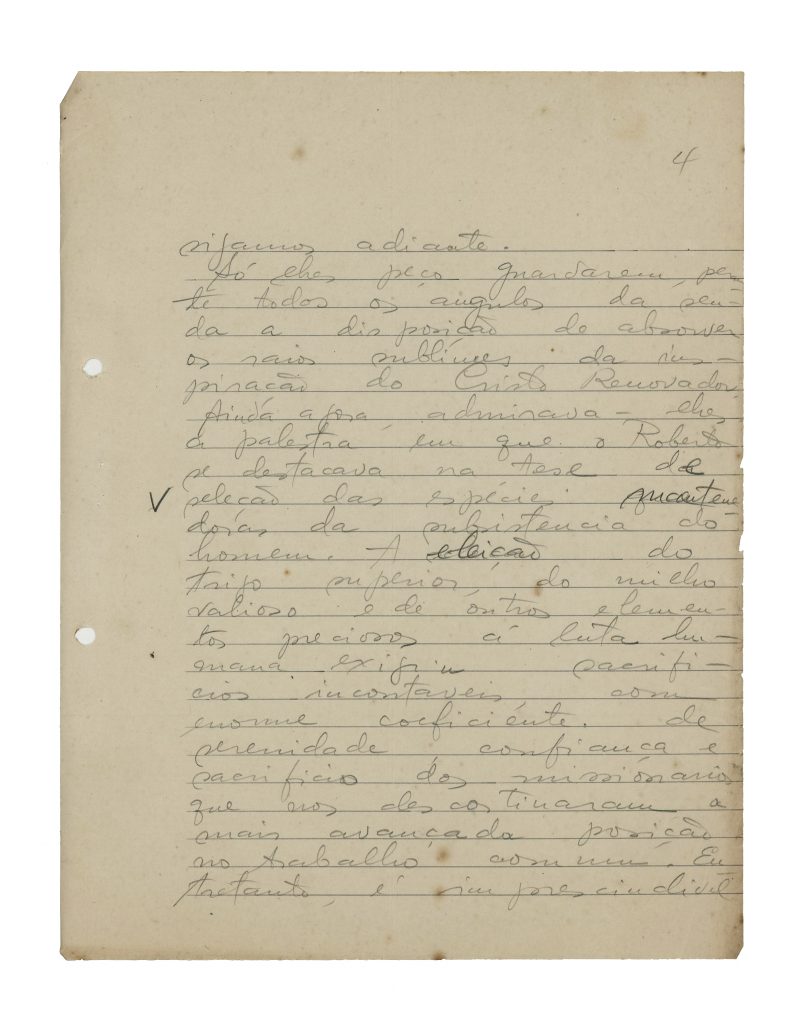 4
sigamos adiante.
Só lhes peço guardarem, peran
te todos os ângulos da sen-
da a disposição de absorver
os raios sublimes da ins-
piração do Cristo Renovador.
Ainda agora admirava-lhes
a palestra em que o Roberto
se destacava na tese de
V seleção das espécies mantene-
doras da subsistencia do
homem. A eleição do
trigo superior, do milho
valioso e de outros elemen-
tos preciosos á luta hu-
mana exigiu sacrifi-
cios incontaveis com
enorme coeficiente. de
serenidade, confiança e
sacrificio dos missionarios
que nos descortinaram a
mais avançada posição
no trabalho comum. En
tretanto, é imprescindivel